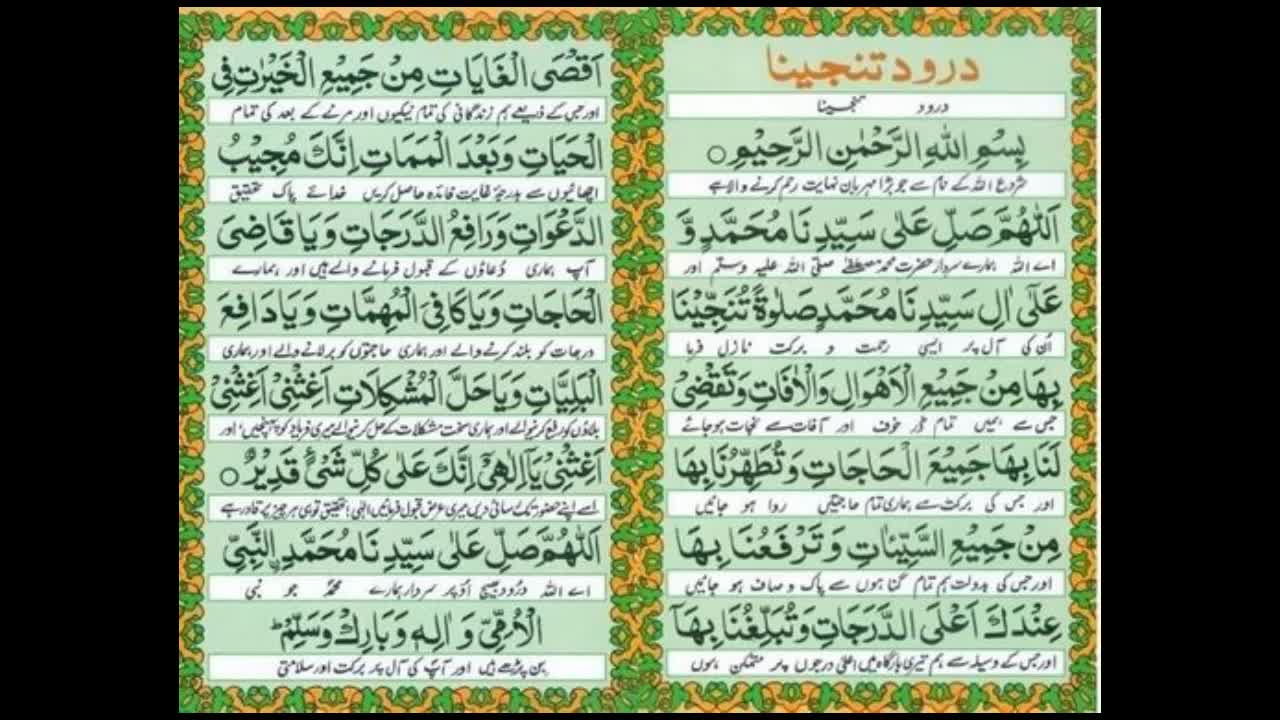 درود تنجینا
درود تنجینا
بِسْمِ اللهِ الرَّحْمٰنِ الرَّحِيْمِ ○
شروع اللہ کے نام سے جو بڑا مہربان نہایت رحم کرنے والا ہے
اَللّٰهُمَّ صَلِّ عَلٰى سَيِّدِنَا مُحَمَّدٍ وَّ
اے اللہ ہمارے سردار حضرت محمد مصطفےٰ صلی اللہ علیہ وسلم اور
عَلٰٓى اٰلِ سَيِّدِنَا مُحَمَّدٍ صَلٰوةً تُنَجِّيْنَا
اُن کی آل پر ایسی رحمت و برکت نازل فرما
بِهَا مِنْ جَمِيْعِ الْاَهْوَالِ وَالْاٰفَاتِ وَتَقْضِىْ
جس سے ہمیں تمام ڈر خوف اور آفات سے نجات ہوجائے
لَنَا بِهَا جَمِيْعَ الْحَاجَاتِ وَتُطَهِّرُنَا بِهَا
اور جس کی برکت سے ہماری تمام حاجتیں روا ہو جائیں
مِنْ جَمِيْعِ السَّيِّئَاتِ وَتَرْفَعُنَا بِهَا
اور جس کی بدولت ہم تمام گناہوں سے پاک و صاف ہو جائیں
عِنْدَكَ اَعْلَى الدَّرَجَاتِ وَتُبَلِّغُنَا بِهَآ
اور جس کے وسیلہ سے ہم تیری بارگاہ میں اعلیٰ درجوں پر متمکن ہوں
اَقْصَى الْغَايَاتِ مِنْ جَمِيْعِ الْخَيْرٰتِ فِى
اور جس کے ذریعے ہم زندگانی کی تمام نیکیوں اور مرنے کے بعد کی تمام
الْحَيَاتِ وَبَعْدَ الْمَمَاتِ اِنَّكَ مُجِيْبُ
اچھائیوں سے بدرجۂ غایت فائدہ حاصل کریں خدائے پاک تحقیق
الدَّعْوَاتِ وَرَافِعُ الدَّرَجَاتِ وَيَا قَاضِىَ
آپ ہماری دُعاؤں کے قبول فرمانے والے ہیں اور ہمارے
الْحَاجَاتِ وَيَا كَافِىَ الْمُهِمَّاتِ وَيَا دَافِعَ
درجات کو بلند کرنے والے اور ہماری حاجتوں کو برلانے والے اور ہماری
الْبَلِيَّاتِ وَيَا حَلَّ الْمُشْكِلَاتِ اَغِثْنِىْ اَغِثْنِىْ
بلاؤں کو رفع کرنیوالے اور ہماری سخت مشکلات کے حل کرنیوالے میری فریاد کو پہنچیں اور
اَغِثْنِىْ يَآ اِلٰهِىْ اِنَّكَ عَلٰى كُلِّ شَىْءٍ قَدِيْرٌ ○
اسے اپنے حضور تک رسائی دیں میری عرض قبول فرمائیں الٰہی! تحقیق تو ہی ہر چیز پر قادر ہے
اَللّٰهُمَّ صَلِّ عَلٰى سَيِّدِنَا مُحَمَّدِ نِ النَّبِيِّ
اے اللہ درُود بھیج اُوپر سردار ہمارے محمدؐ جو نبی
الْاُمِّيِّ وَاٰلِهٖ وَبَارِكْ وَسَلِّمْ ؕ
بن پڑھے ہیں اور آپؐ کی آل پر برکت اور سلامتی